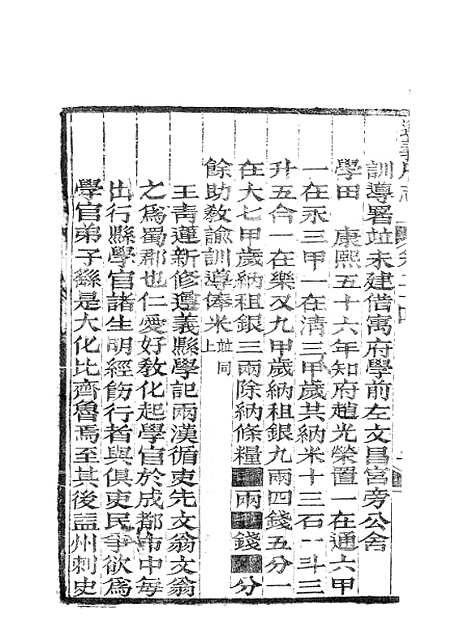 訓導署並未建借寓府學前左文昌宮旁公舍
學田　康熙五十六年知府趙光榮置一在通六甲
一在永三甲一在淸三甲歲共納米十三石一斗三
升五合一在樂又九甲歲納租銀九兩四錢五分一
在大七甲歲納租銀三兩除納條糧兩錢分
餘助敎諭訓導俸米並同上
王靑蓮新修遵義縣學記兩漢循吏先文翁文翁
之爲蜀郡也仁愛好敎化起學官於成都市中每
出行縣學官諸生明經飭行者與俱吏民爭欲爲
學官弟子繇是大化比齊魯焉至其後益州刺史